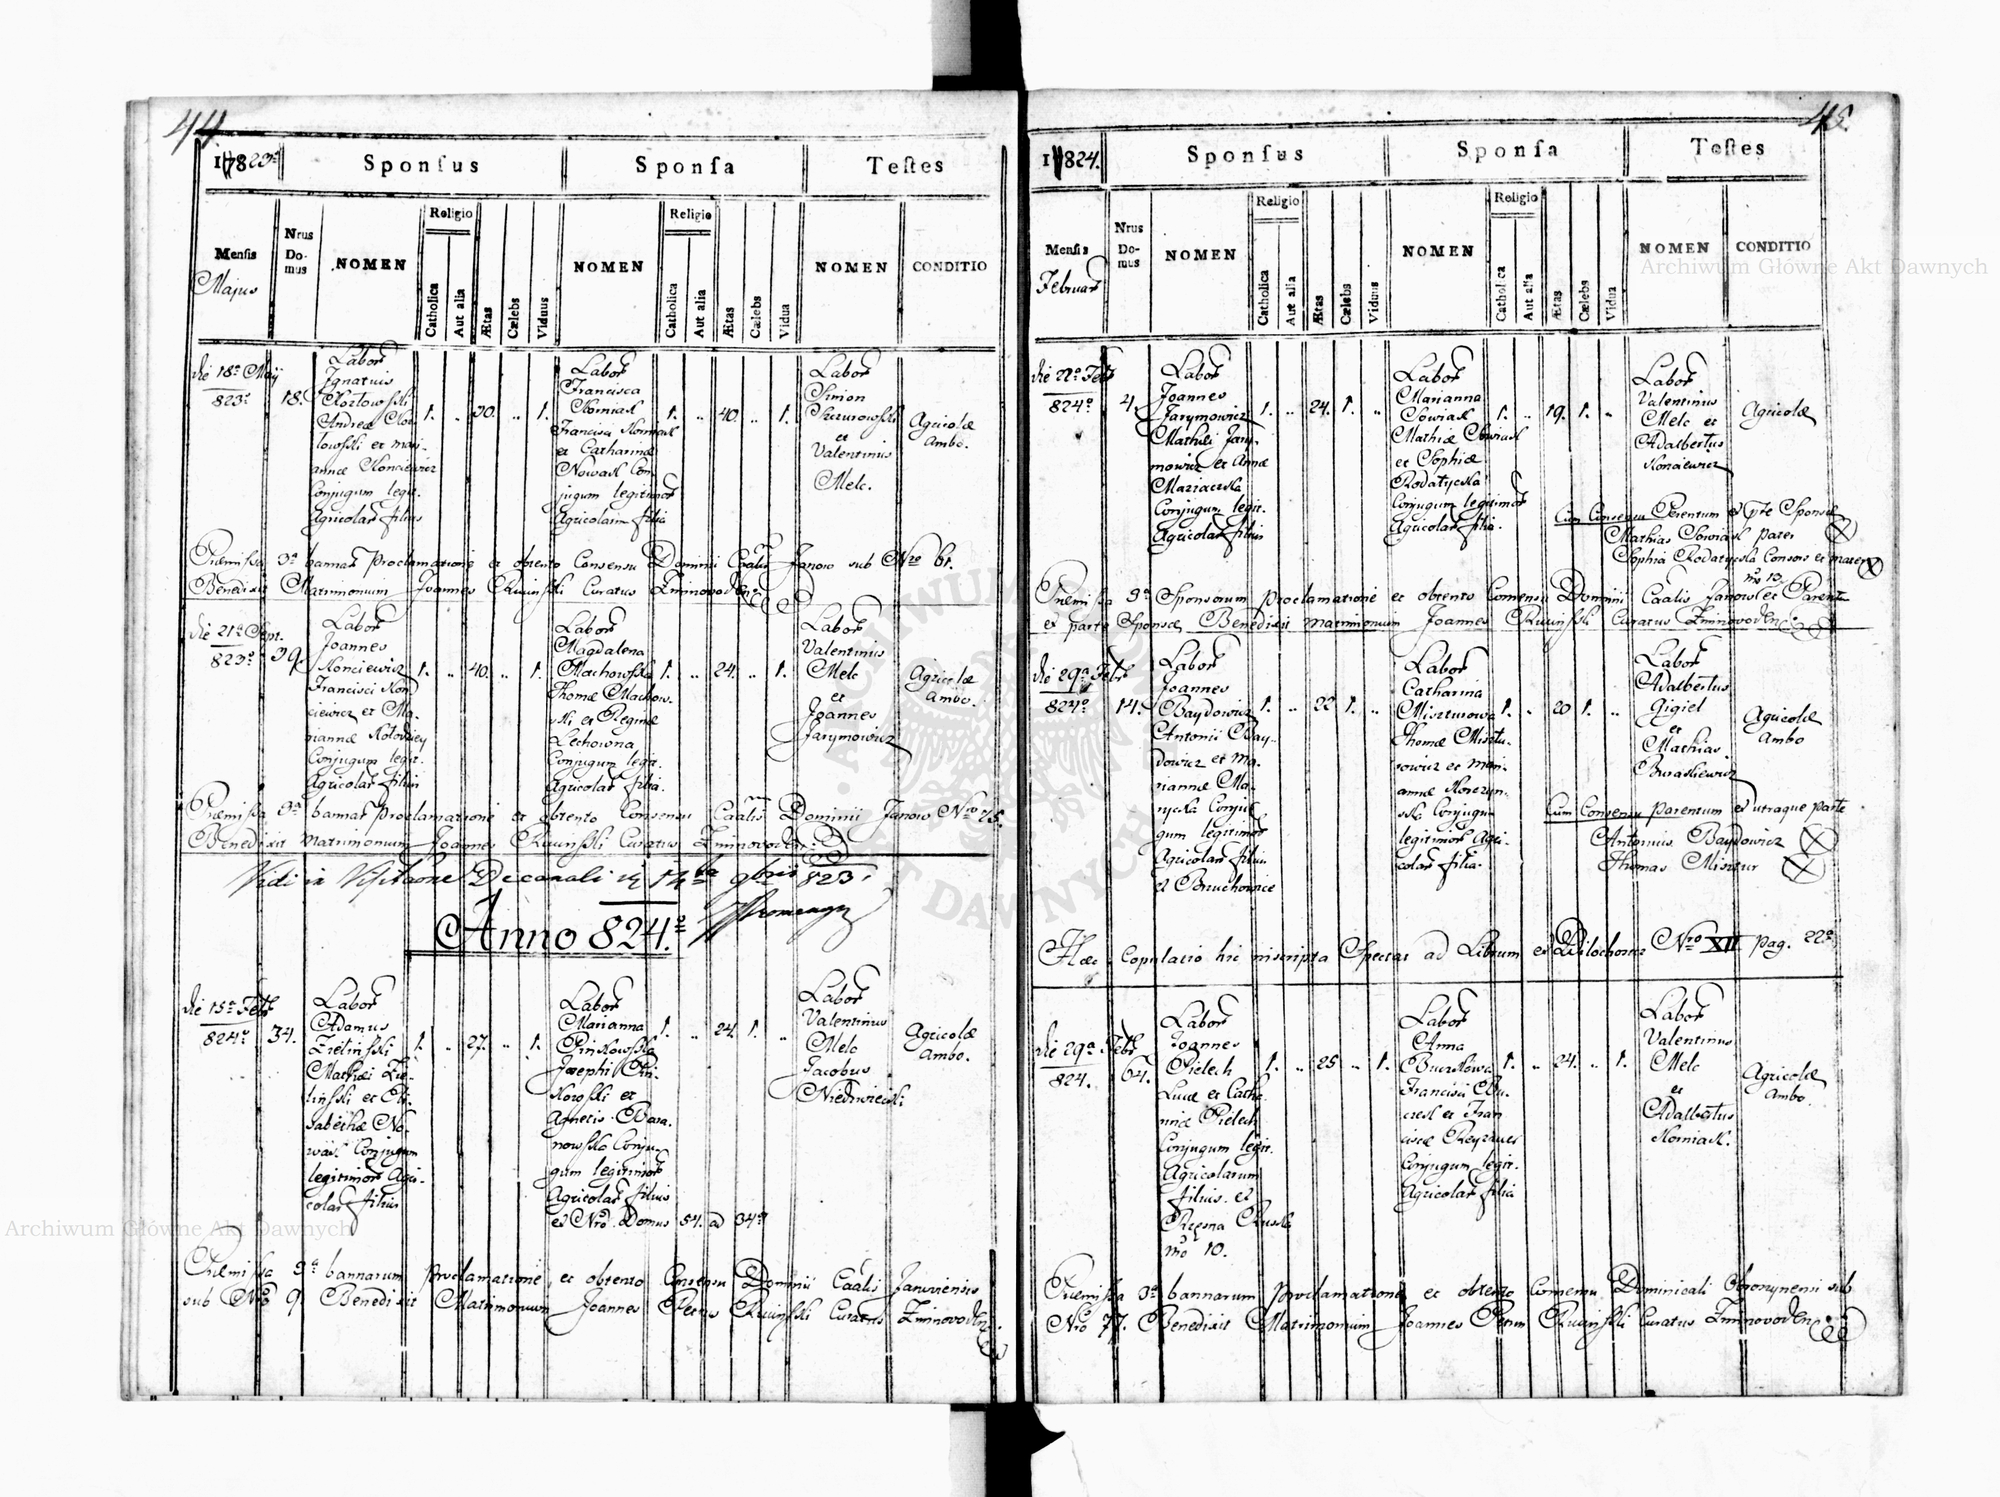 44.
17823º
Sponsus
Sponsa
Testes
Mensis
Majus
Nrus Domus
NOMEN
Religio
Catholica
Aut alia
Ætas
Cælebs
Viduus
NOMEN
Religio
Catholica
Aut alia
Ætas
Cælebs
Vidua
NOMEN
CONDITIO
die 18ª Maij
823º
18.
Labor
Ignatius
Kozłowski
Andreæ Koz-
łowski et Mari-
annæ Konciewicz
Conjugum legit.
Agricolar filius
1. „ 30. „ 1.
Labor
Francisca
Korniak
Francisci Korniak
et Catharinæ
Nowak Con-
jugum legitimor
Agricolarum filia
1. „ 40. „ 1.
Labor
Simon
et
Valentinus
Melc.
Agricolæ
Ambo.
Præmissa 3ª bannar Proclamatione et obtento Consensu Dominii Caalis Janow sub Nro 61.
Benedixit Matrimonium Joannes Curatus
die 21ª Sept.
823º
39.
Labor
Joannes
Konciewicz
Francisci Kon-
ciewicz et Ma-
riannæ Kołodziey
Conjugum legit.
Agricolar filius
1. „ 40. „ 1.
Labor
Magdalena
Machowska
Thomæ Machow-
ski et Reginæ
Lechowna
Conjugum legit.
Agricolar filia.
1. „ 24. „ 1.
Labor
Valentinus
Melc
et
Joannes
Jarymowicz
Agricolæ
Ambo.
Præmissa 3ª bannar Proclamatione et obtento Consensu Caalis Dominii Janow Nro 75.
Benedixit Matrimonium Joannes Curatus
Vidi in Visitatione Decanali 9bris 823.
Anno 824.º
die 15ª Febr
824º
34.
Labor
Adamus
Zielinski
Mathæi Zie-
linski et Eli-
sabethæ No-
wak Conjugum
legitimor Agri-
colar filius
1. „ 27. „ 1.
Labor
Marianna
Pinkowska
Josephi Pin-
kowski et
Agnetis Bara-
nowska Conju-
gum legitimor
Agricolar filia
et Nro Domus 54. ad 34ª
1. „ 24. 1. „
Labor
Valentinus
Melc
Jacobus
Niedzwiecki
Agricolæ
Ambo.
Præmissa 3ª bannarum Proclamatione, et obtento Consensu Dominii Caalis Janoviensis
sub Nro 9. Benedixit Matrimonium Joannes Petrus Curatus
45.
1824.
Sponsus
Sponsa
Testes
Mensis
Februar
Nrus Domus
NOMEN
Religio
Catholica
Aut alia
Ætas
Cælebs
Viduus
NOMEN
Religio
Catholica
Aut alia
Ætas
Cælebs
Vidua
NOMEN
CONDITIO
die 22ª Febr
824º
4.
Labor
Joannes
Jarymowicz
Mathæi Jary-
mowicz et Annæ
Conjugum legit.
Agricolar filius
1. „ 24. 1. „
Labor
Marianna
Sowiak
Mathiæ Sowiak
et Sophiæ
Rodatycska
Conjugum legitimor
Agricolar filia.
1. „ 19. 1. „
Labor
Valentinus
Melc et
Adalbertus
Konciewicz
Agricolæ
Cum Consensu Parentum ex parte Sponsæ
Mathias Sowiak pater
Sophia Rodatycska Consors et mater
Præmissa 3ª Sponsorum Proclamatione et obtento Consensu Dominii Caalis Janow Nro 13 et Parentum
ex parte Sponsæ Benedixit Matrimonium Joannes Curatus
die 29ª Febr
824º
14.
Labor
Joannes
Baydowicz
Antonii Bay-
dowicz et Ma-
riannæ Ma-
Conju-
gum legitimor
Agricolar filius
ex Bruchowice
1. „ 22 1. „
Labor
Catharina
Misturowa
Thomæ Mistu-
rowicz et Mari-
annæ Korczyn-
ska Conjugum
legitimor Agri-
colar filia.
1. „ 20 1. „
Labor
Adalbertus
Gigiel
et
Mathias
Buraskiewicz
Agricolæ
Ambo
Cum Consensu Parentum ex utraque parte
Antonius Baydowicz
Thomas Mistur
Hæc Copulatio hic inscripta Spectat ad Librum Nro XII pag. 22ª
die 29ª Febr
824.
64.
Labor
Joannes
Pielech
Lucæ et Catha-
rinæ Pielech
Conjugum legit.
Agricolarum
filius. ex
Rzęsna Ruska
Nro 10.
1. „ 25 „ 1.
Labor
Anna
Francisci
et Fran-
ciscæ
Conjugum legit.
Agricolar filia
1. „ 24. „ 1.
Labor
Valentinus
Melc
et
Adalbertus
Korniak.
Agricolæ
Ambo.
Præmissa 3ª bannarum Proclamatione, et obtento Consensu Dominicali sub
Nro 77. Benedixit Matrimonium Joannes Petrus Curatus
Archiwum Główne Akt Dawnych
Archiwum Główne Akt Dawnych
ARCHIWUM GŁÓWNE AKT DAWNYCH